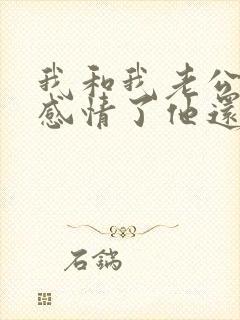 我和我老公
感情了他還
石鍋